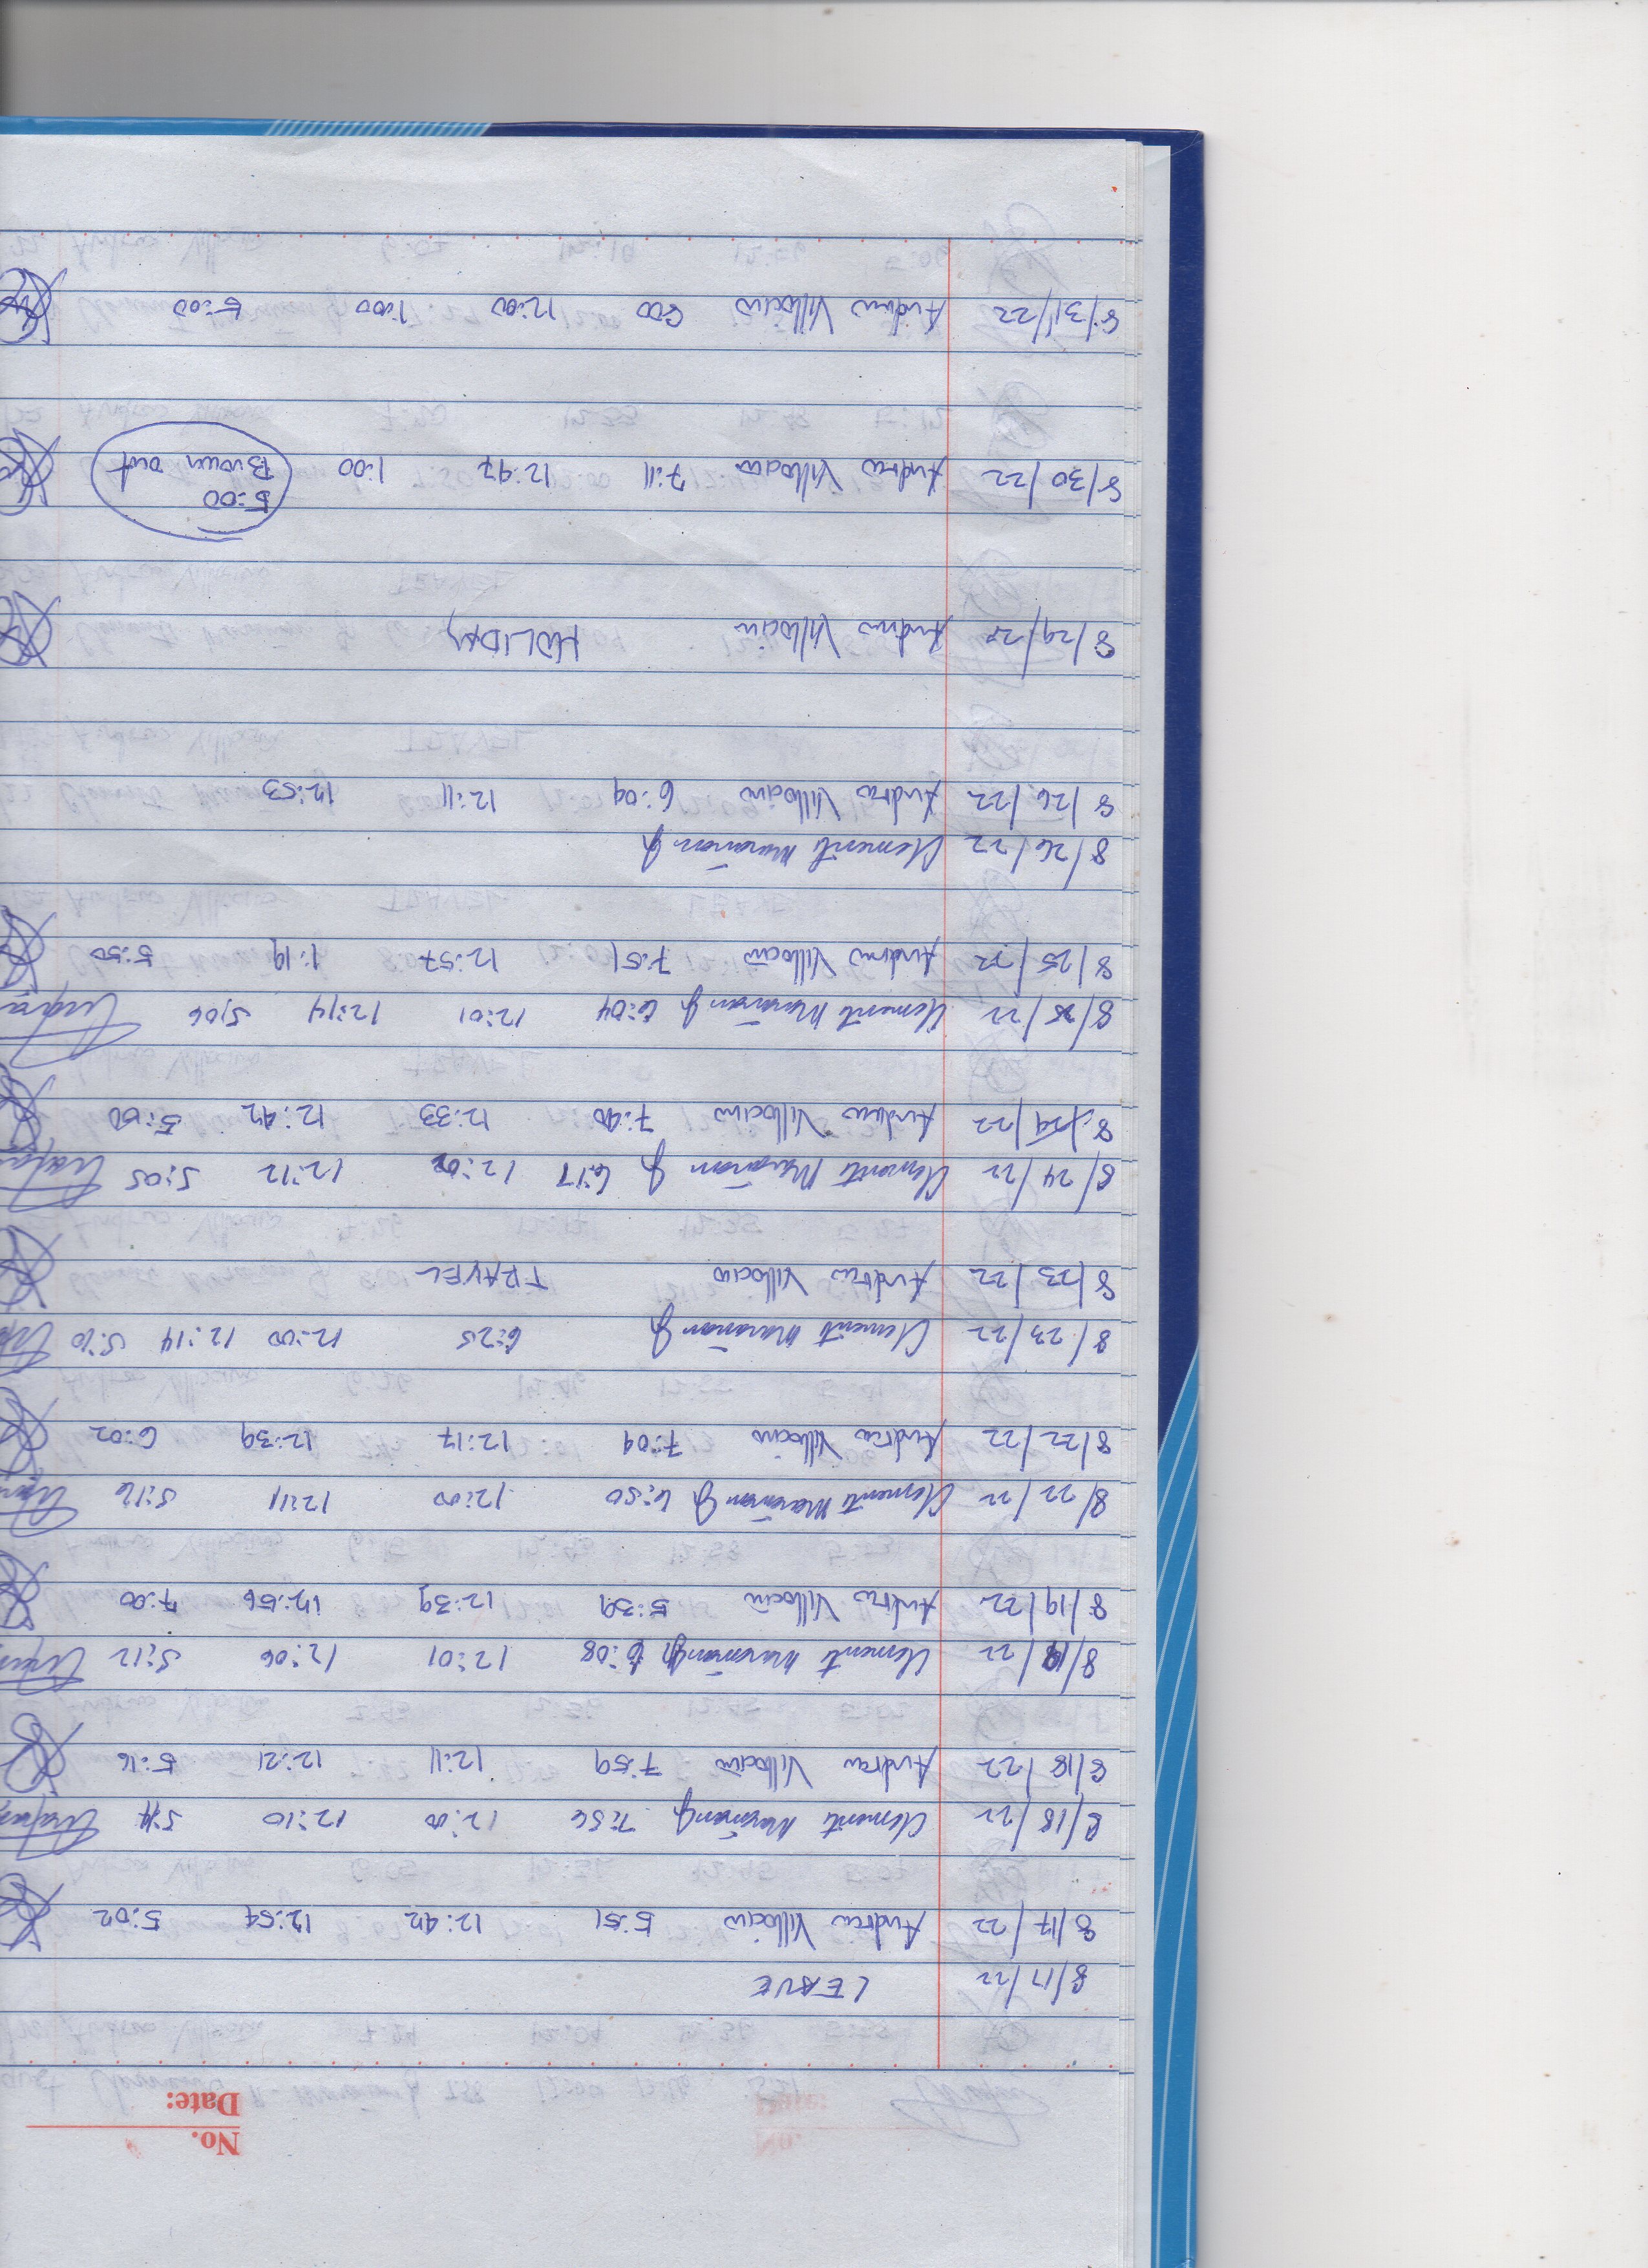 No.
Date:
8/17/22 LEAVE
8/17/22 Andrew Villocino 5:51 12:42 12:54 5:02
8/18/22 Clemente Maranan Jr 7:56 12:00 12:10 5:11
8/18/22 Andrew Villocino 7:59 12:11 12:21 5:16
8/19/22 Clemente Maranan Jr 6:08 12:01 12:06 5:12
8/19/22 Andrew Villocino 5:39 12:39 12:56 7:00
8/22/22 Clemente Maranan Jr 6:50 12:00 12:11 5:16
8/22/22 Andrew Villocino 7:09 12:17 12:39 6:02
8/23/22 Clemente Maranan Jr 6:25 12:00 12:14 5:10
8/23/22 Andrew Villocino TRAVEL
8/24/22 Clemente Maranan Jr 6:17 12:02 12:12 5:05
8/24/22 Andrew Villocino 7:40 12:33 12:42 5:00
8/25/22 Clemente Maranan Jr 6:04 12:01 12:14 5:06
8/25/22 Andrew Villocino 7:51 12:57 1:19 5:50
8/26/22 Clemente Maranan Jr
8/26/22 Andrew Villocino 6:09 12:11 12:53
8/29/22 Andrew Villocino HOLIDAY
8/30/22 Andrew Villocino 7:11 12:47 1:00 5:00
Brown out
8/31/22 Andrew Villocino 8:00 12:00 1:00 5:00